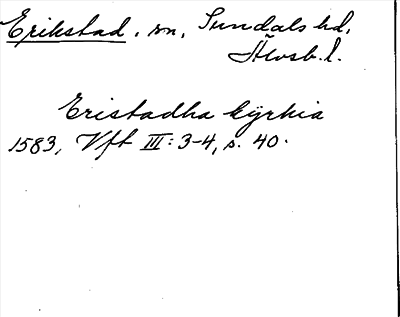 Erikstad, sn, Sundals hd,
Älvsb. l.
Eristadha kyrkia
1583, Vft III: 3-4, s. 40.